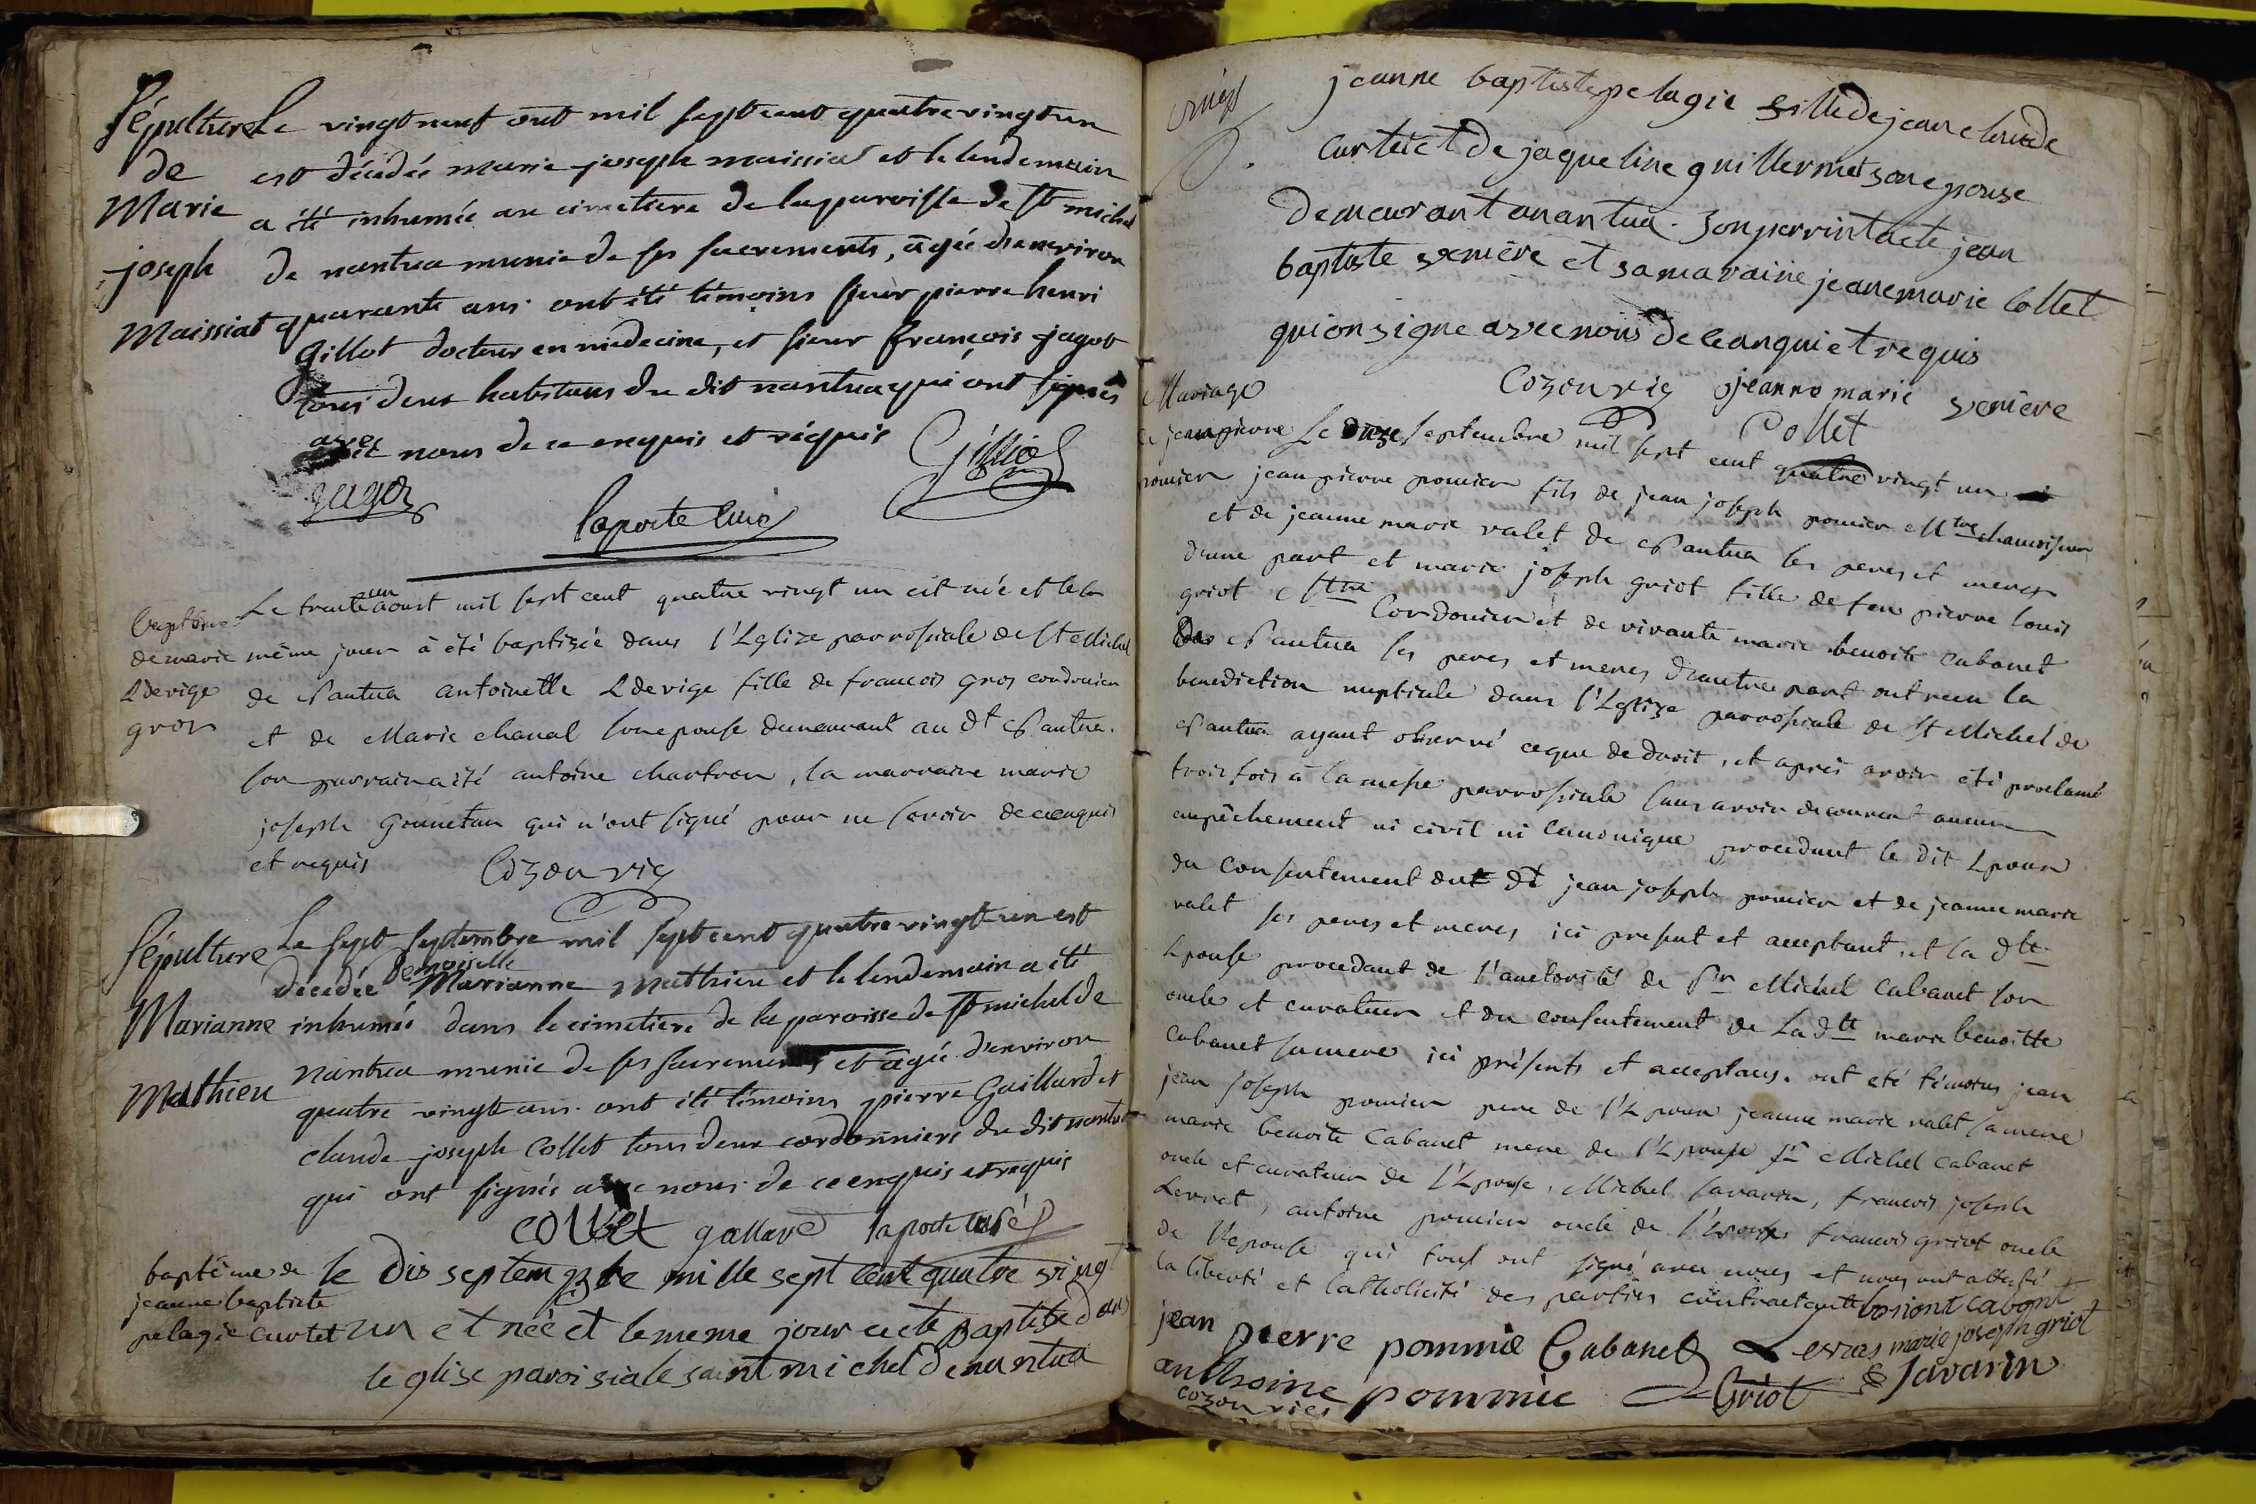 Sépulture Le vingt neuf out mil sept cent quatre vingt un
de est décédée marie joseph maissiat et le lendemain
Marie a été inhumée au cimetiere de la paroisse de St michel
joseph de nantua munie de ses sacrements, âgée d'environ
Maissiat quarante ans ont été témoins sieur pierre henri
Gillot docteur en médecine, et sieur françois jagot
tous deux habitans du dit nantua qui ont signés
avec nous de ce enquis et réquis
Gilliot
jagot
laporte curé
baptême Le trente un aoust mil sept cent quatre vingt un est née et le
de marie même jour à été baptisée dans l'Eglize parrossiale de St Michel
Edevige de Nantua antoinette Edevige fille de francois gros cordonier
gros et de Marie chanal son epouse demeurant au dt Nantua.
son parrain a été antoine chartron, la marraine marie
joseph gounetan qui n'ont signé pour ne savoir de ce enquis
et requis Cozon vic
Sépulture Le sept septembre mil sept cent quatre vingt un est
décedée Demoiselle Marianne Mathieu et le lendemain a été
Marianne inhumée dans le cimetiere de la paroisse de St michel de
nantua munie de ses sacrements et âgée d'environ
Mathieu quatre vingt ans. ont été témoins pierre Gaillard et
claude joseph Collet tous deux cordonniers du dit nantua
qui ont signés avec nous de ce enquis et requis
Collet gallard laporte curé
baptême de le dis septembre mille sept cent quatre vingt
jeanne baptiste
pelagie curtet un et née et le meme jour a ete Baptisé dans
leglise paroisiale saint michel de nantua
jeanne baptiste pelagie fille de jean claude
curtet et de jaqueline guillermet son epouse
demeurant anantua. son perrin tacte jean
baptiste semiére et sa maraine jeanemarie Collet
qui on signe avec nous de ce anqui et requis
Cozon vic jeanne marie semiere
Collet
Mariage
de jean pierre Le onze septembre mil sept cent quatre vingt un
pomier jean pierre pomier fils de jean joseph pomier Mtre chamoiseur
et de jeanne marie valet de Nantua les peres et meres
d'une part et marie joseph griot fille de feu pierre louis
griot Mtre Cordonier et de vivante marie benoite cabanet
de Nantua ses peres et meres d'autre part ont recu la
benediction nuptiale dans l'Eglize parrossiale de St Michel de
Nantua ayant observé ce que de droit, et aprés avoir été proclamé
trois fois à la messe parrossiale sans avoir decouvert aucun
empêchement ni civil ni Canonique procedant le dit Epoux
du Consentement dudt dt jean joseph pomier et de jeanne marie
valet ses peres et meres ici present et acceptant, et la dtte
Epouse procedant de l'auctorité de Sr Michel Cabanet son
oncle et curateur et du consentement de La dtt marie benoitte
Cabanet sa mere ici présents et acceptans. ont eté témoins jean
jean joseph pomier pere de l'Epoux jeanne marie valet sa mere
marie benoite Cabanet mere de l'Epouse Sr Michel Cabanet
oncle et curateur de l'Epouse, Michel savarin, francois joseph
Levrat, antoine pomier oncle de l'Epoux francois griot oncle
de l'epouse qui tous ont signé avec nous et nous ont attesté
la liberté et Catholicité des parties contractante
jean pierre pommié Cabanet marie joseph griot
anthoine pommié Griot Savarin
cozon vic